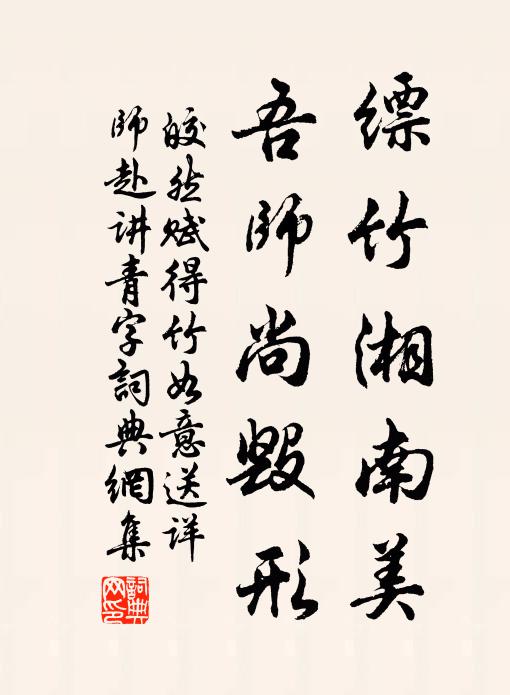 缥竹湘南美
吾师尚毁形
皎然赋得竹如意送详
师赴讲青字詞典網集
詞典
网印